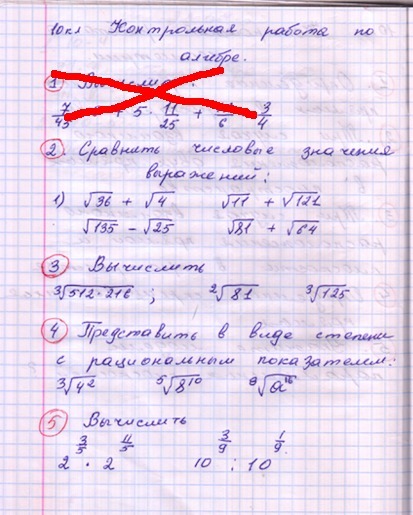 10кл Контрольная работа по
алгебре.
1
7/45 + 5 · 11/25 + 6 3/4
2. Сравнить числовые значения
выражений:
1) √36 + √4 √11 + √121
√135 - √25 √81 + √64
3 Вычислить
³√512·216 ; ²√81 ³√125
4 Представить в виде степени
с рациональным показателем:
³√4² ⁵√8¹⁰ ⁸√a¹⁶
5 Вычислить
2^(3/5) · 2^(11/5) 10^(3/9) : 10^(1/9)